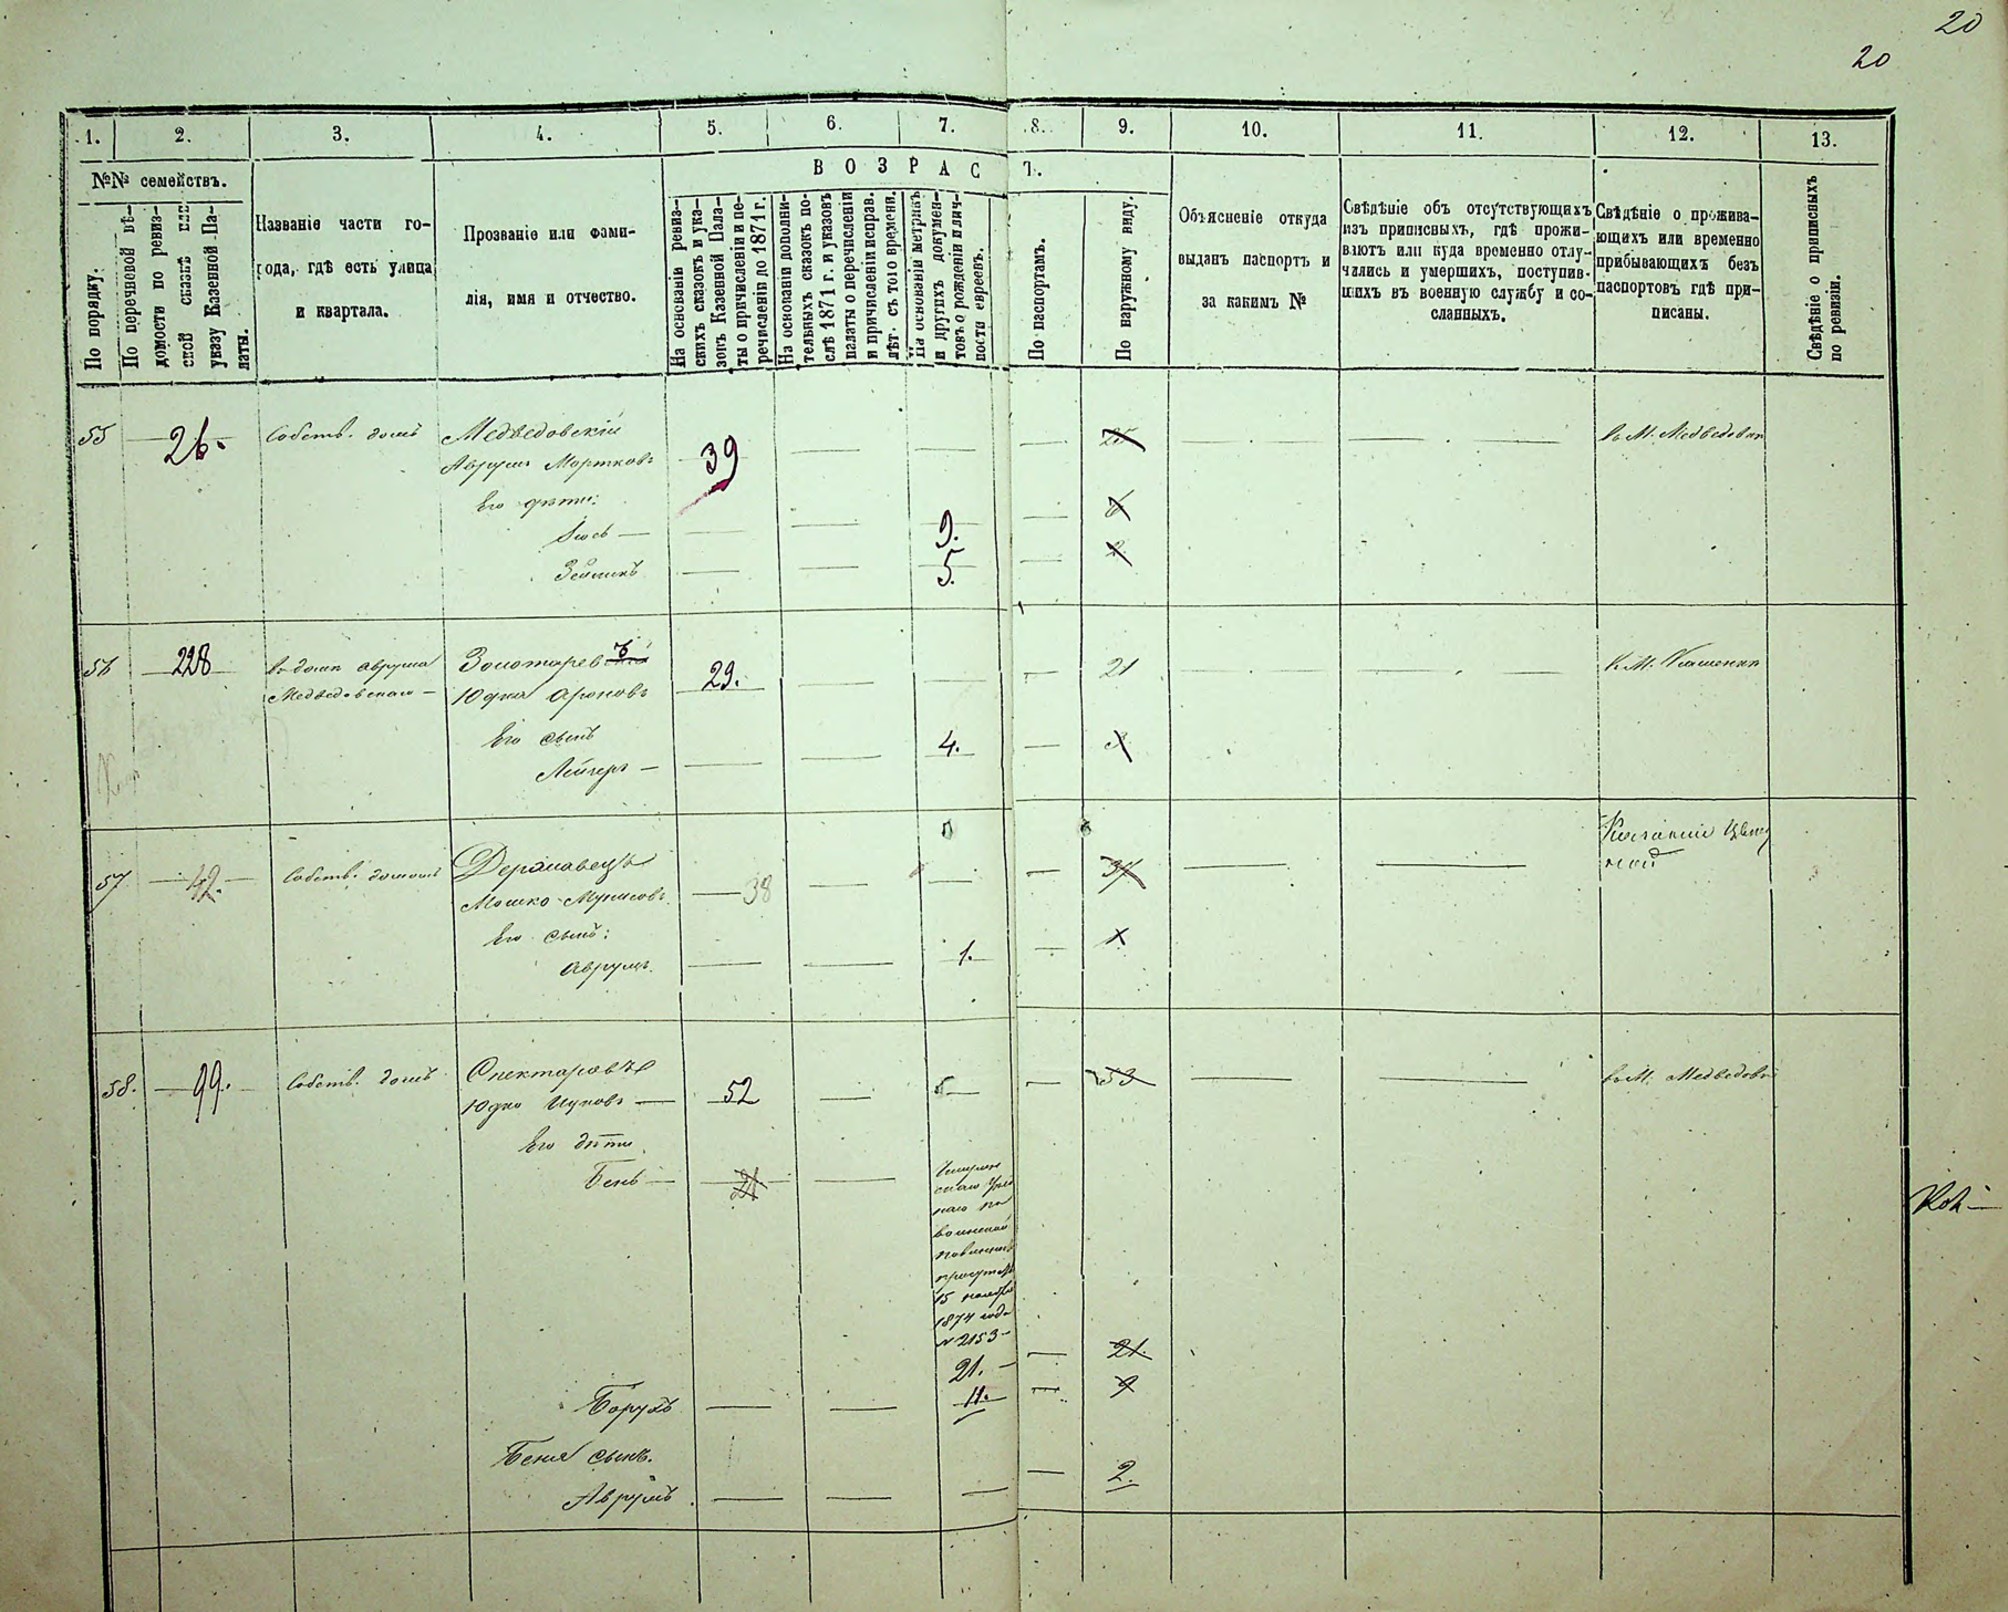 20
20
1. 2. 3. 4. 5. 6. 7. 8. 9. 10. 11. 12. 13.
№№ семействъ.
ВОЗРАСТ.
По порядку.
По перечневой вѣ-
домости по ревиз-
ской сказкѣ или
указу Казенной Па-
латы.
Названіе части го-
рода, гдѣ есть улица
и квартала.
Прозваніе или фами-
лія, имя и отчество.
На основаніи ревиз-
скихъ сказокъ и ука-
зокъ Казенной Пала-
ты о причисленіи и пе-
речисленіи до 1871 г.
На основаніи дополни-
тельныхъ сказокъ по-
слѣ 1871 г. и указовъ
палаты о перечисленіи
и причисленіи исправ.
лѣт. съ того времени.
На основаніи метрикъ
и другихъ докумен-
товъ о рожденіи и лич-
ности евреевъ.
По паспортамъ.
По наружному виду.
Объясненіе откуда
выданъ паспортъ и
за какимъ №
Свѣдѣніе объ отсутствующихъ
изъ приписныхъ, гдѣ прожи-
ваютъ или куда временно отлу-
чились и умершихъ, поступив-
шихъ въ военную службу и со-
сланныхъ.
Свѣдѣніе о прожива-
ющихъ или временно
прибывающихъ безъ
паспортовъ гдѣ при-
писаны.
Свѣдѣніе о приписныхъ
по ревизіи.
55 26. Собств. домъ Медведовскій 39 25 въ М. Медведовк
Аврумъ Мортковъ
Его дѣти:
Іось 9. 6
Зейликъ 5. 2
56 228 въ домѣ Аврума Золотаревъ 29. 21 К М. Клашенки
Медведовскаго Юдка Ароновъ
Его сынъ 4.
Лейзеръ
57 42. Собств. домомъ Державецъ 38 37
Мошко Мунисовъ
Его сынъ: 1. 1
Аврумъ.
58. 99. Собств. домъ Спекторовъ 52 53 въ М. Медведовк
Юдко Ицковъ
Его дѣти
Бень 21
скаго
наго по
воинской
повинност
15 ноября
1874 года
№ 2153
21. 21.
Борухъ 11. 9
Беня сынъ.
Аврумъ 2.